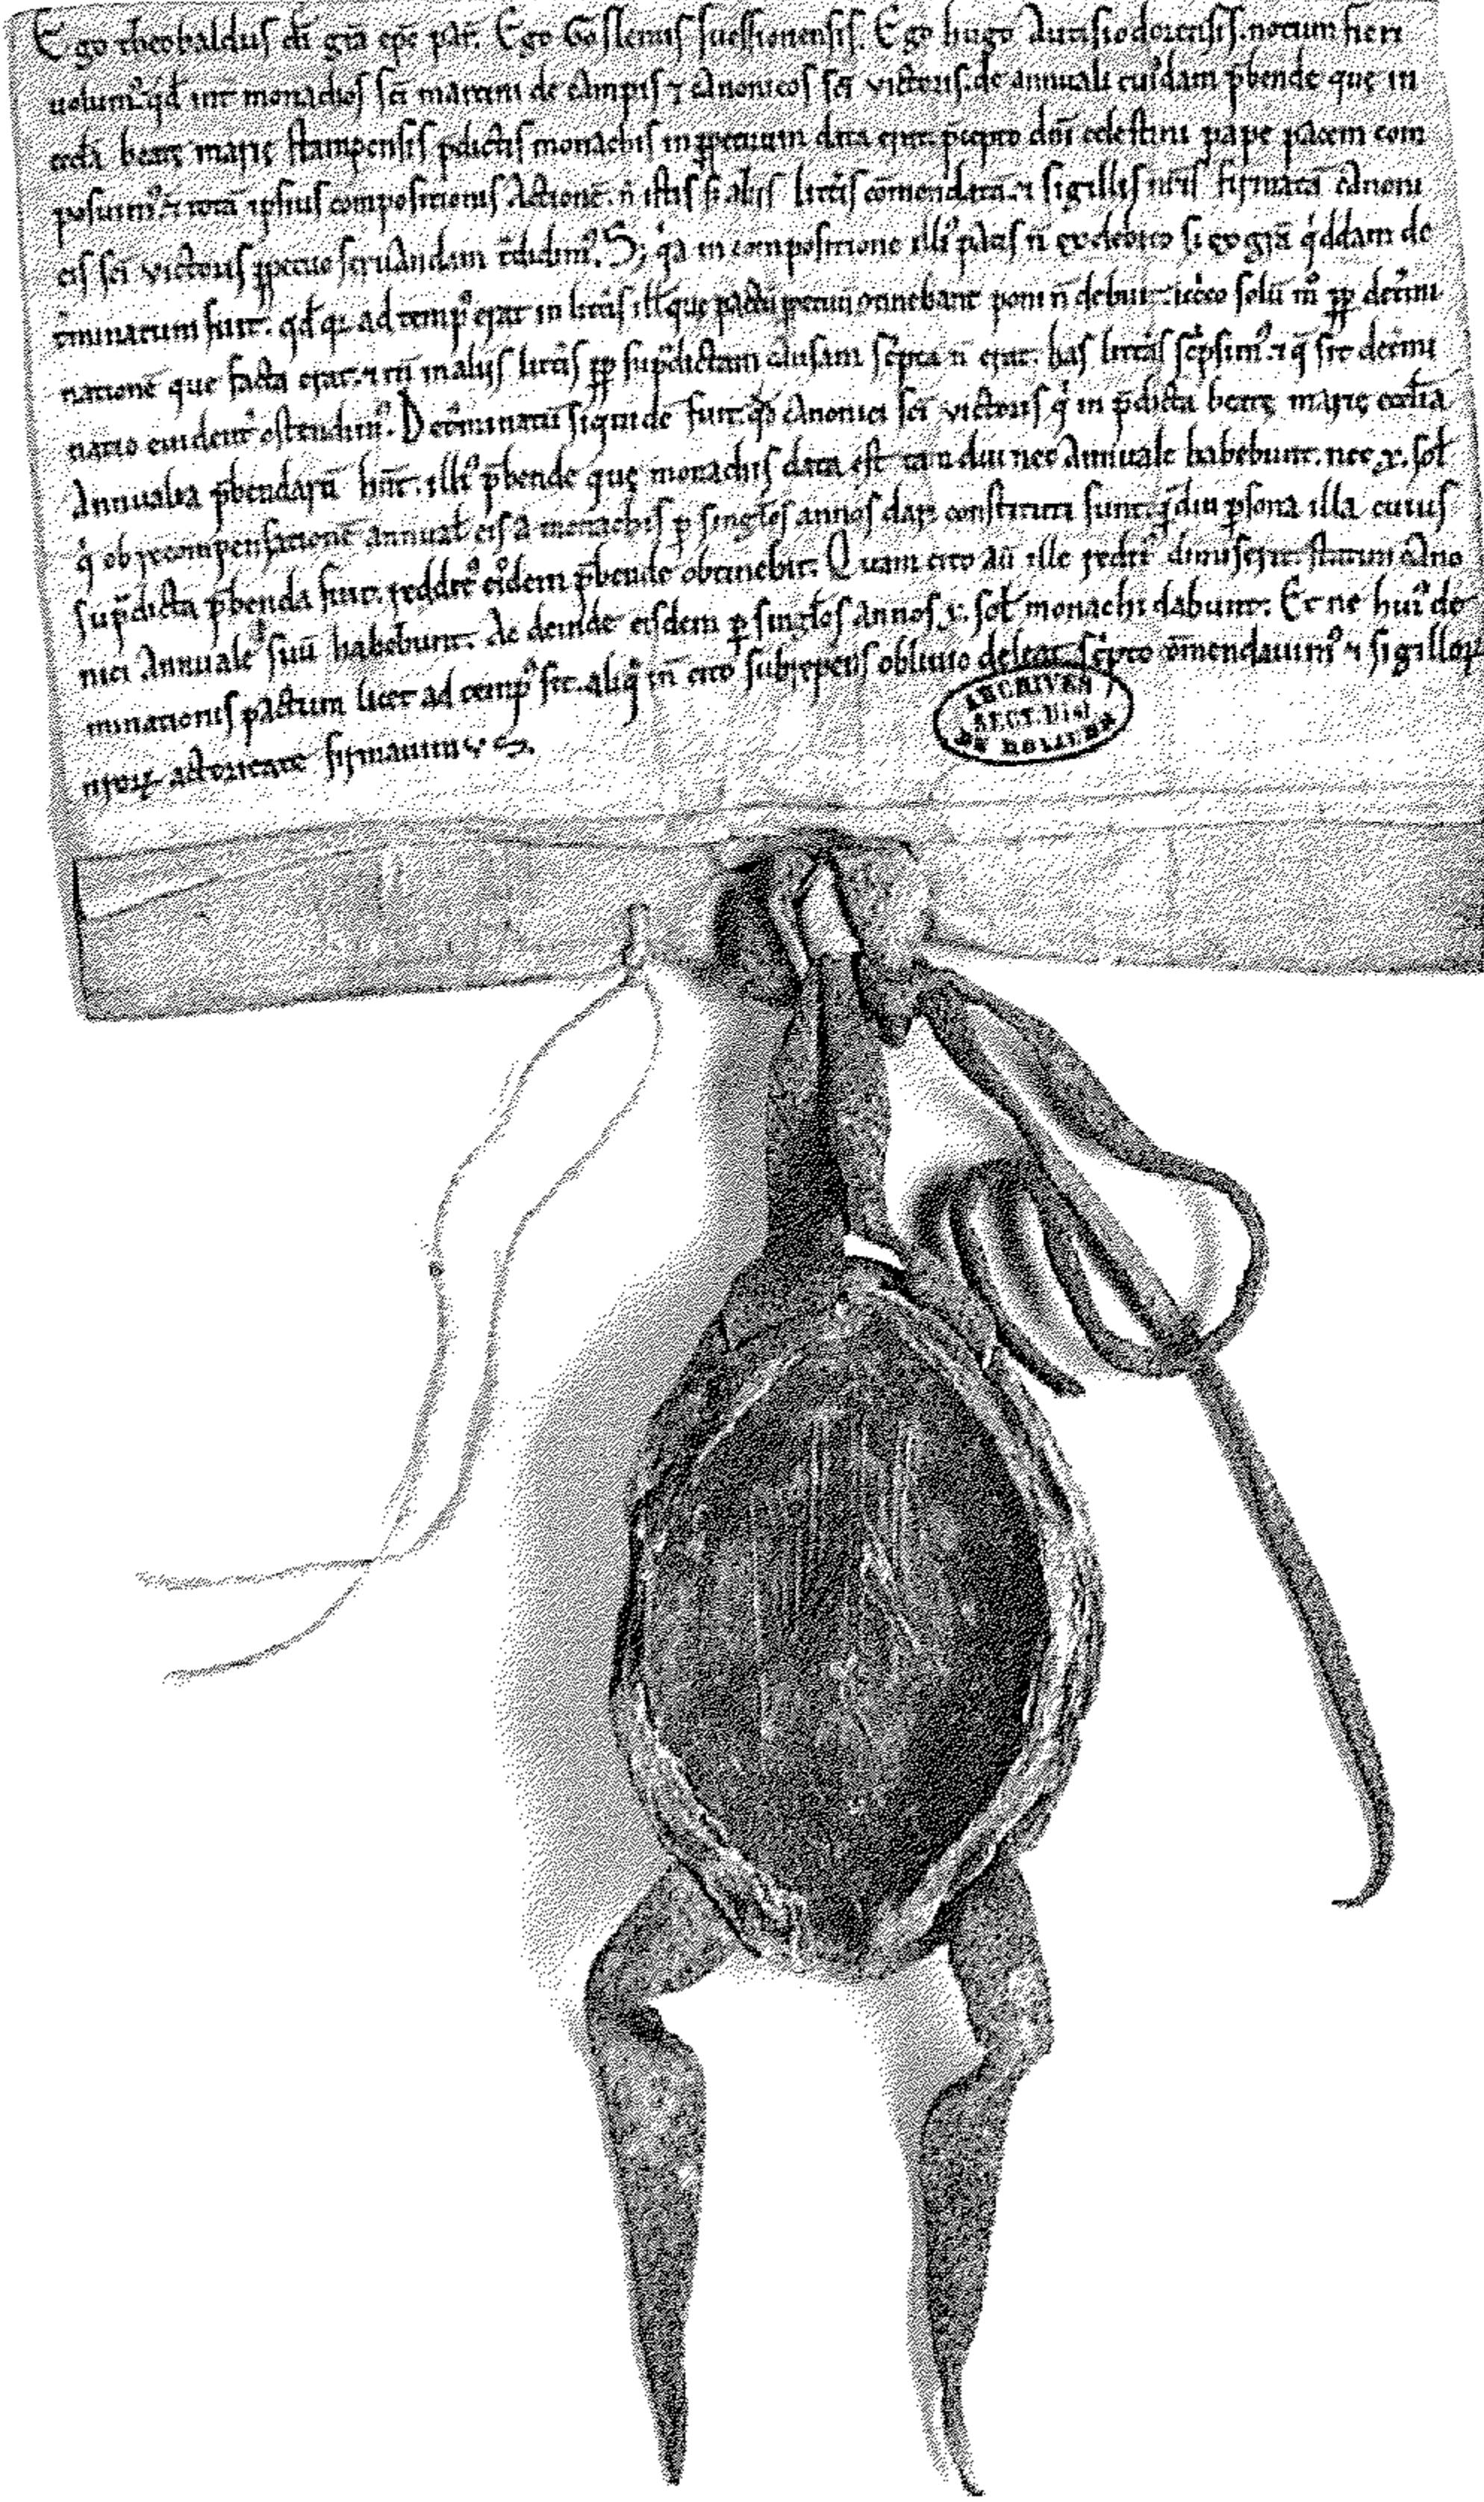 Ego theobaldus di grā epc par̄. Ego Goslenus suessionensis. Ego hugo Autisiodorensis. notum fieri
uolumꝰ. qd̄ int̄ monachos sci martini de campis ⁊ canonicos sci victoris. de annuali cuiꝰdam p̄bende quę in
eccl̄a beatę marię stampensis p̄dictis monachis in ꝑpetuum data erat. p̄cepto dn̄i celestini pape pacem com
posuimꝰ. ⁊ totā ipsius compositionis Actionē. n̄ istis s; aliis litt̄is cōmendatā. ⁊ sigillis nr̄is firmatā canoni
cis sci victoris ꝑpetuo seruandam t̄didimꝰ. S; q̇a in compositione illiꝰ pacis n̄ ex debito s; ex grā q̇ddam de
t̄minatum fuit. qd̄ q; ad tempꝰ erat in litt̄is illis que pactū ꝑpetuū continebant poni n̄ debuit. iccirco solū m̊ ꝓpt̄ det̄mi
nationē que facta erat. ⁊ tn̄ in aliis litt̄is ꝓpt̄ sup̄dictam causam sc̄pta n̄ erat. has litt̄as sc̄psimꝰ. ⁊ q̄ sit det̄mi
natio euident̄ ostendimꝰ. Det̄minatū siquidē fuit. qd̄ canonici sci victoris q̇ in p̄dicta beatę marię eccl̄ia
Annualia p̄bendarū hn̄t. illiꝰ p̄bende quę monachis data est tam diu nec Annuale habebunt. nec x. sol̄
q̇ ob recompensationē annual̄ eis a monachis ꝑ singl̄os annos dari constituti sunt. q̄diu ꝑsona illa cuius
sup̄dicta p̄benda fuit. redditꝰ eiꝰdem p̄bende obtinebit. Quam cito aū ille redditꝰ dimiserit. statim cano
nici Annuale suū habebunt. Ac deinde eisdem ꝑ singl̄os Annos x. sol̄ monachi dabunt. Et ne huiꝰ det̄
minationis pactum licet ad tempꝰ sit. aliq̄tn̄ cito subrepens obliuio deleat. sc̄pto cōmendauimꝰ ⁊ sigilloꝝ
nr̄oꝝ actoritate firmauimus.
ARCHIVES
SECT. HIST.
DU ROYAUME